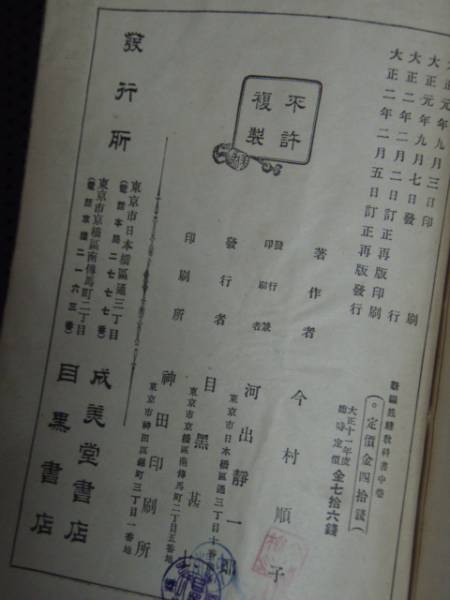 大正元年九月三日印刷
大正元年九月七日發行
大正二年二月二日訂正再版印刷
大正二年二月五日訂正再版發行
裁縫教科書中卷
定價金四拾錢
大正十一年度
臨時定價金七拾六錢
不許
複製
著作者 今村順子
發行兼
印刷者 河出靜一郎
東京市日本橋區通三丁目十番地
發行者 目黑甚七
東京市京橋區南傳馬町二丁目五番地
印刷所 神田印刷所
東京市神田區錦町三丁目一番地
發行所
東京市日本橋區通三丁目 成美堂書店
(電話本局二七七七番)
東京市京橋區南傳馬町二丁目 目黑書店
(電話京橋二一六三番)